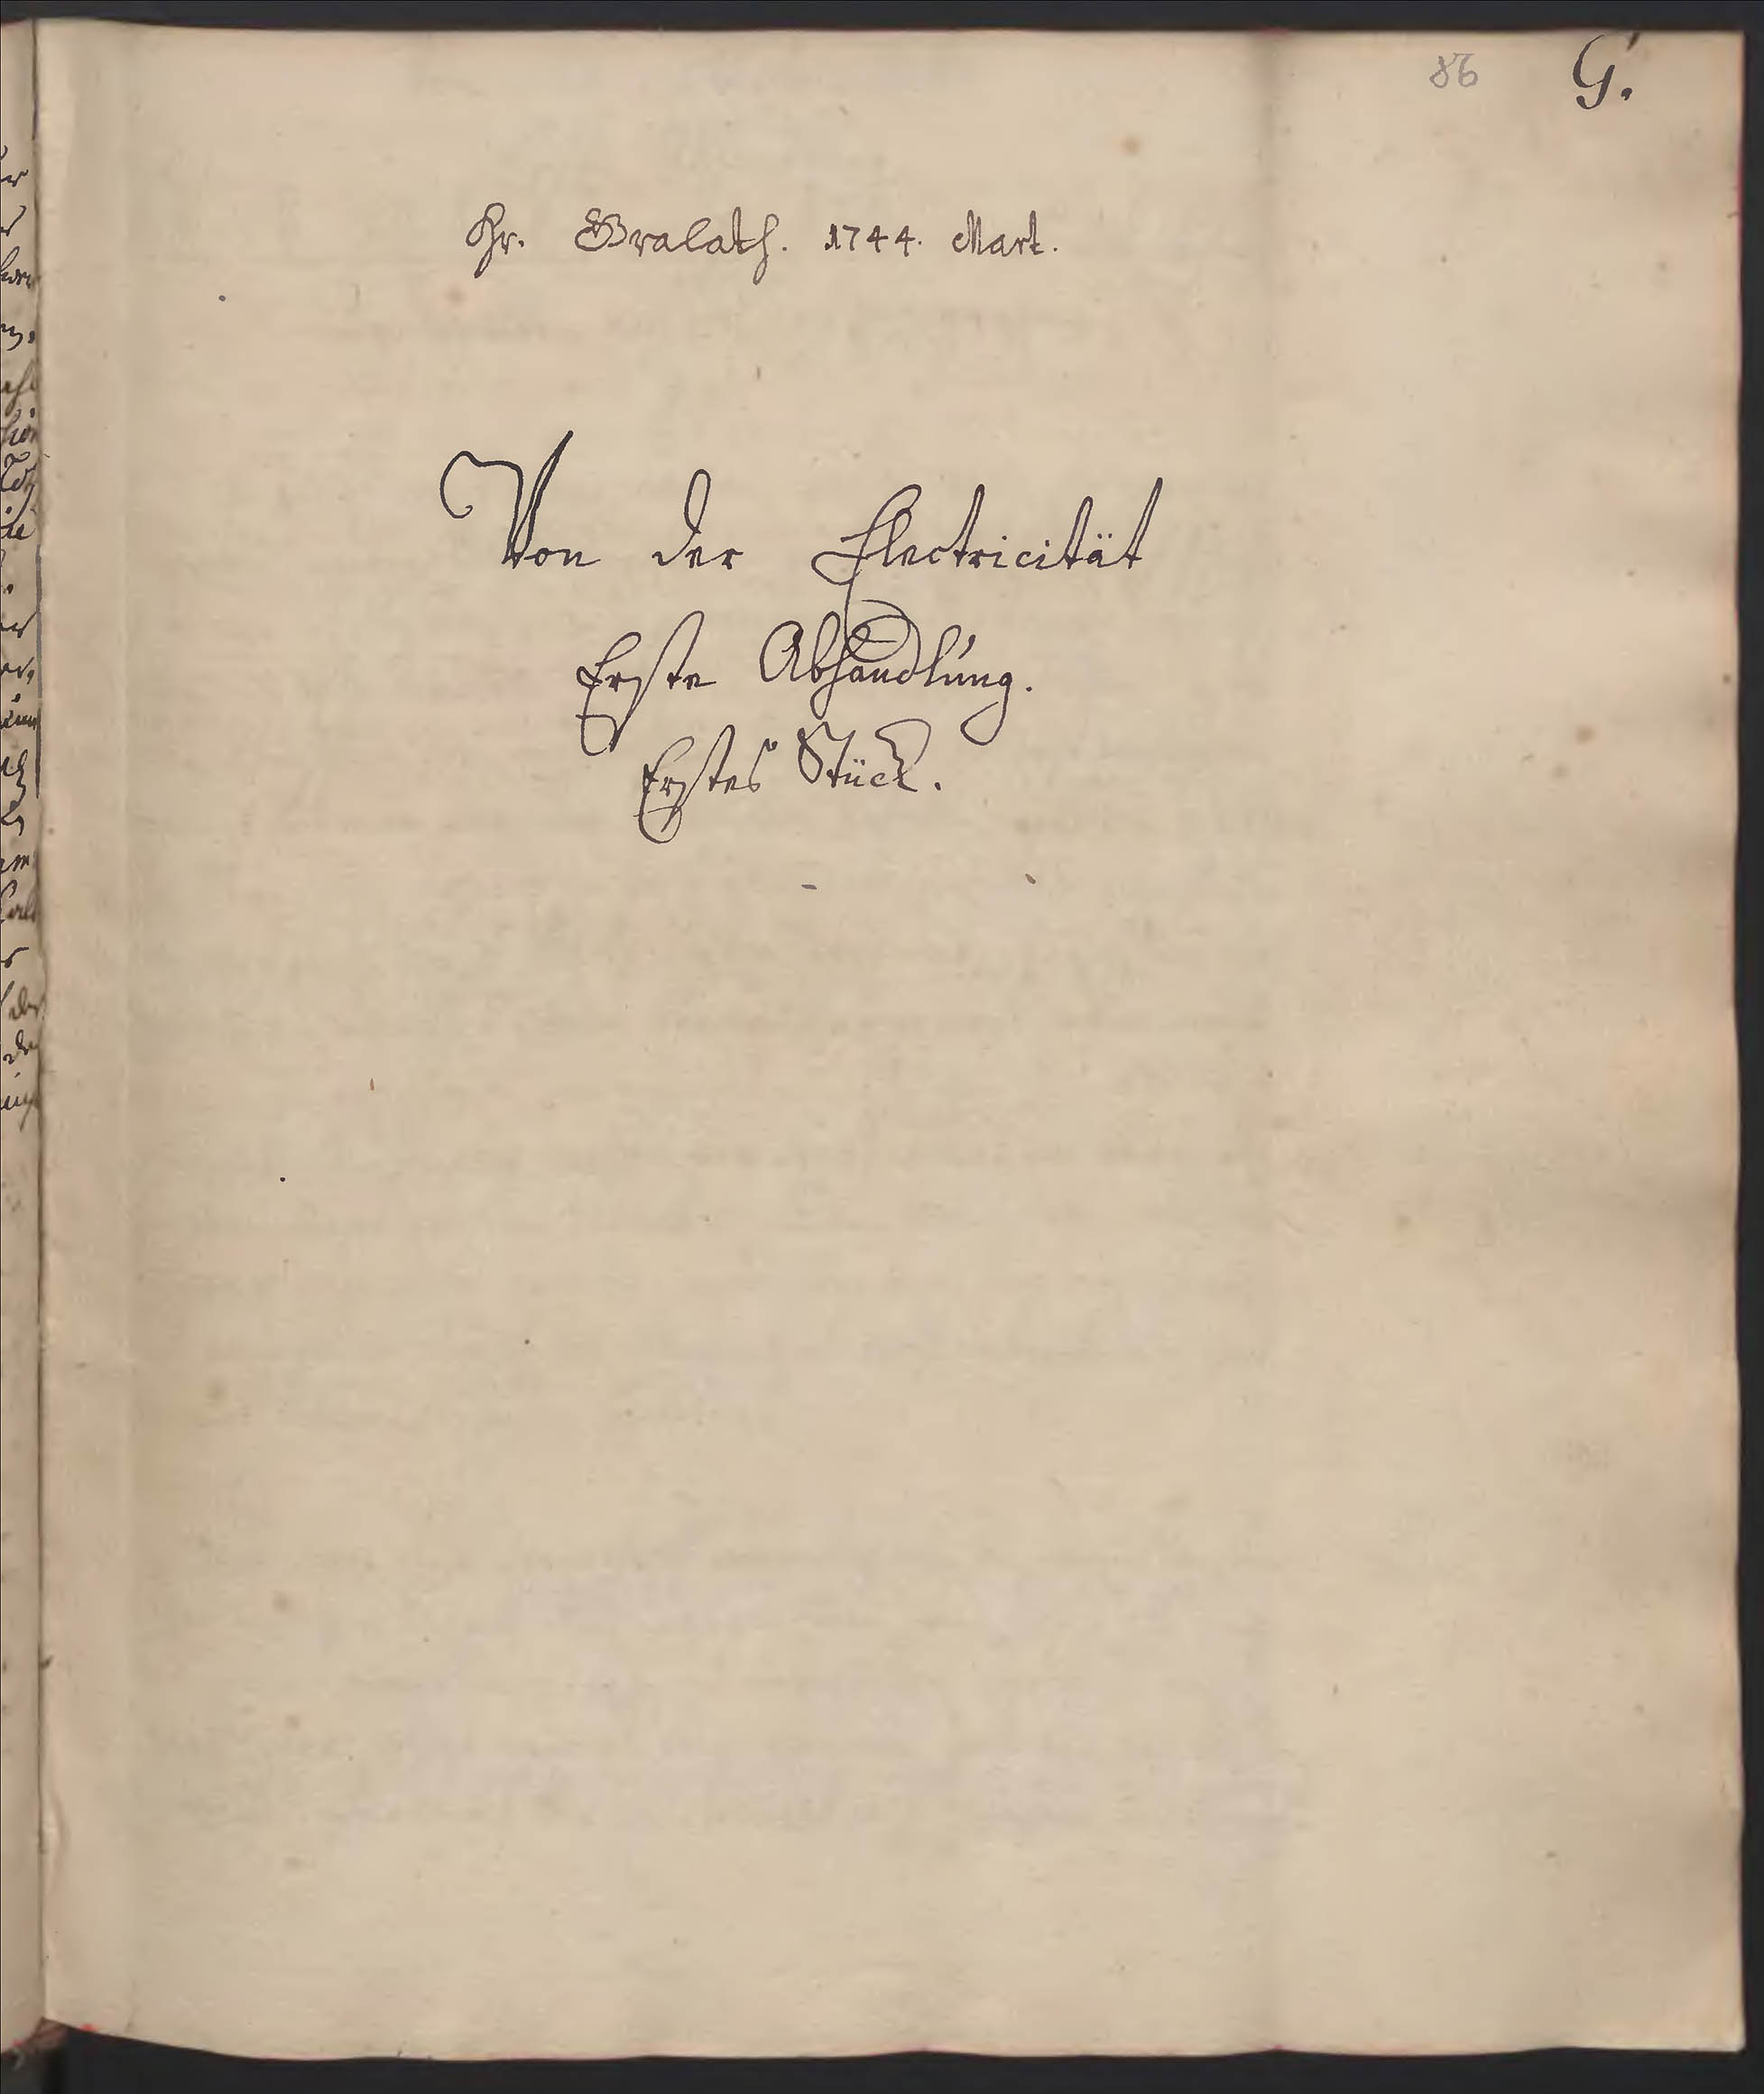 86 G.
Hr. Gralath. 1744. Mart.
Von der Electricität
Erste Abhandlung.
Erstes Stück.